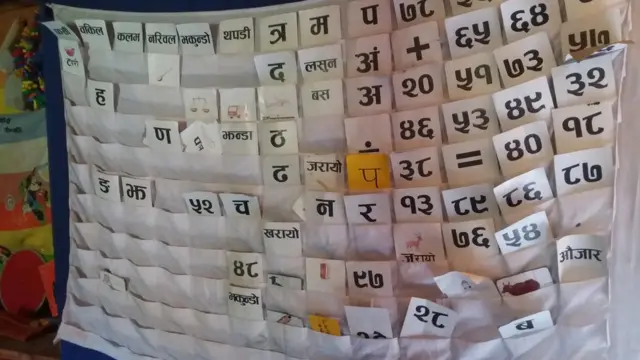 वकिल कलम नरिवल नकुन्डो थपडी त्र म प ७८ ६४
द लसुन अं + ६५ ७३ ५७
ह बस अ २० ५१ ४९ ३२
ण झन्डा ठ ४६ ५३ ४० १८
ढ जरायो प ३८ = ८६ ८७
ङ झ ५२ च न र १३ ८९
खरायो जरायो ७६ ५४ औजार
४८ ९७
नकुन्डो २८ ब